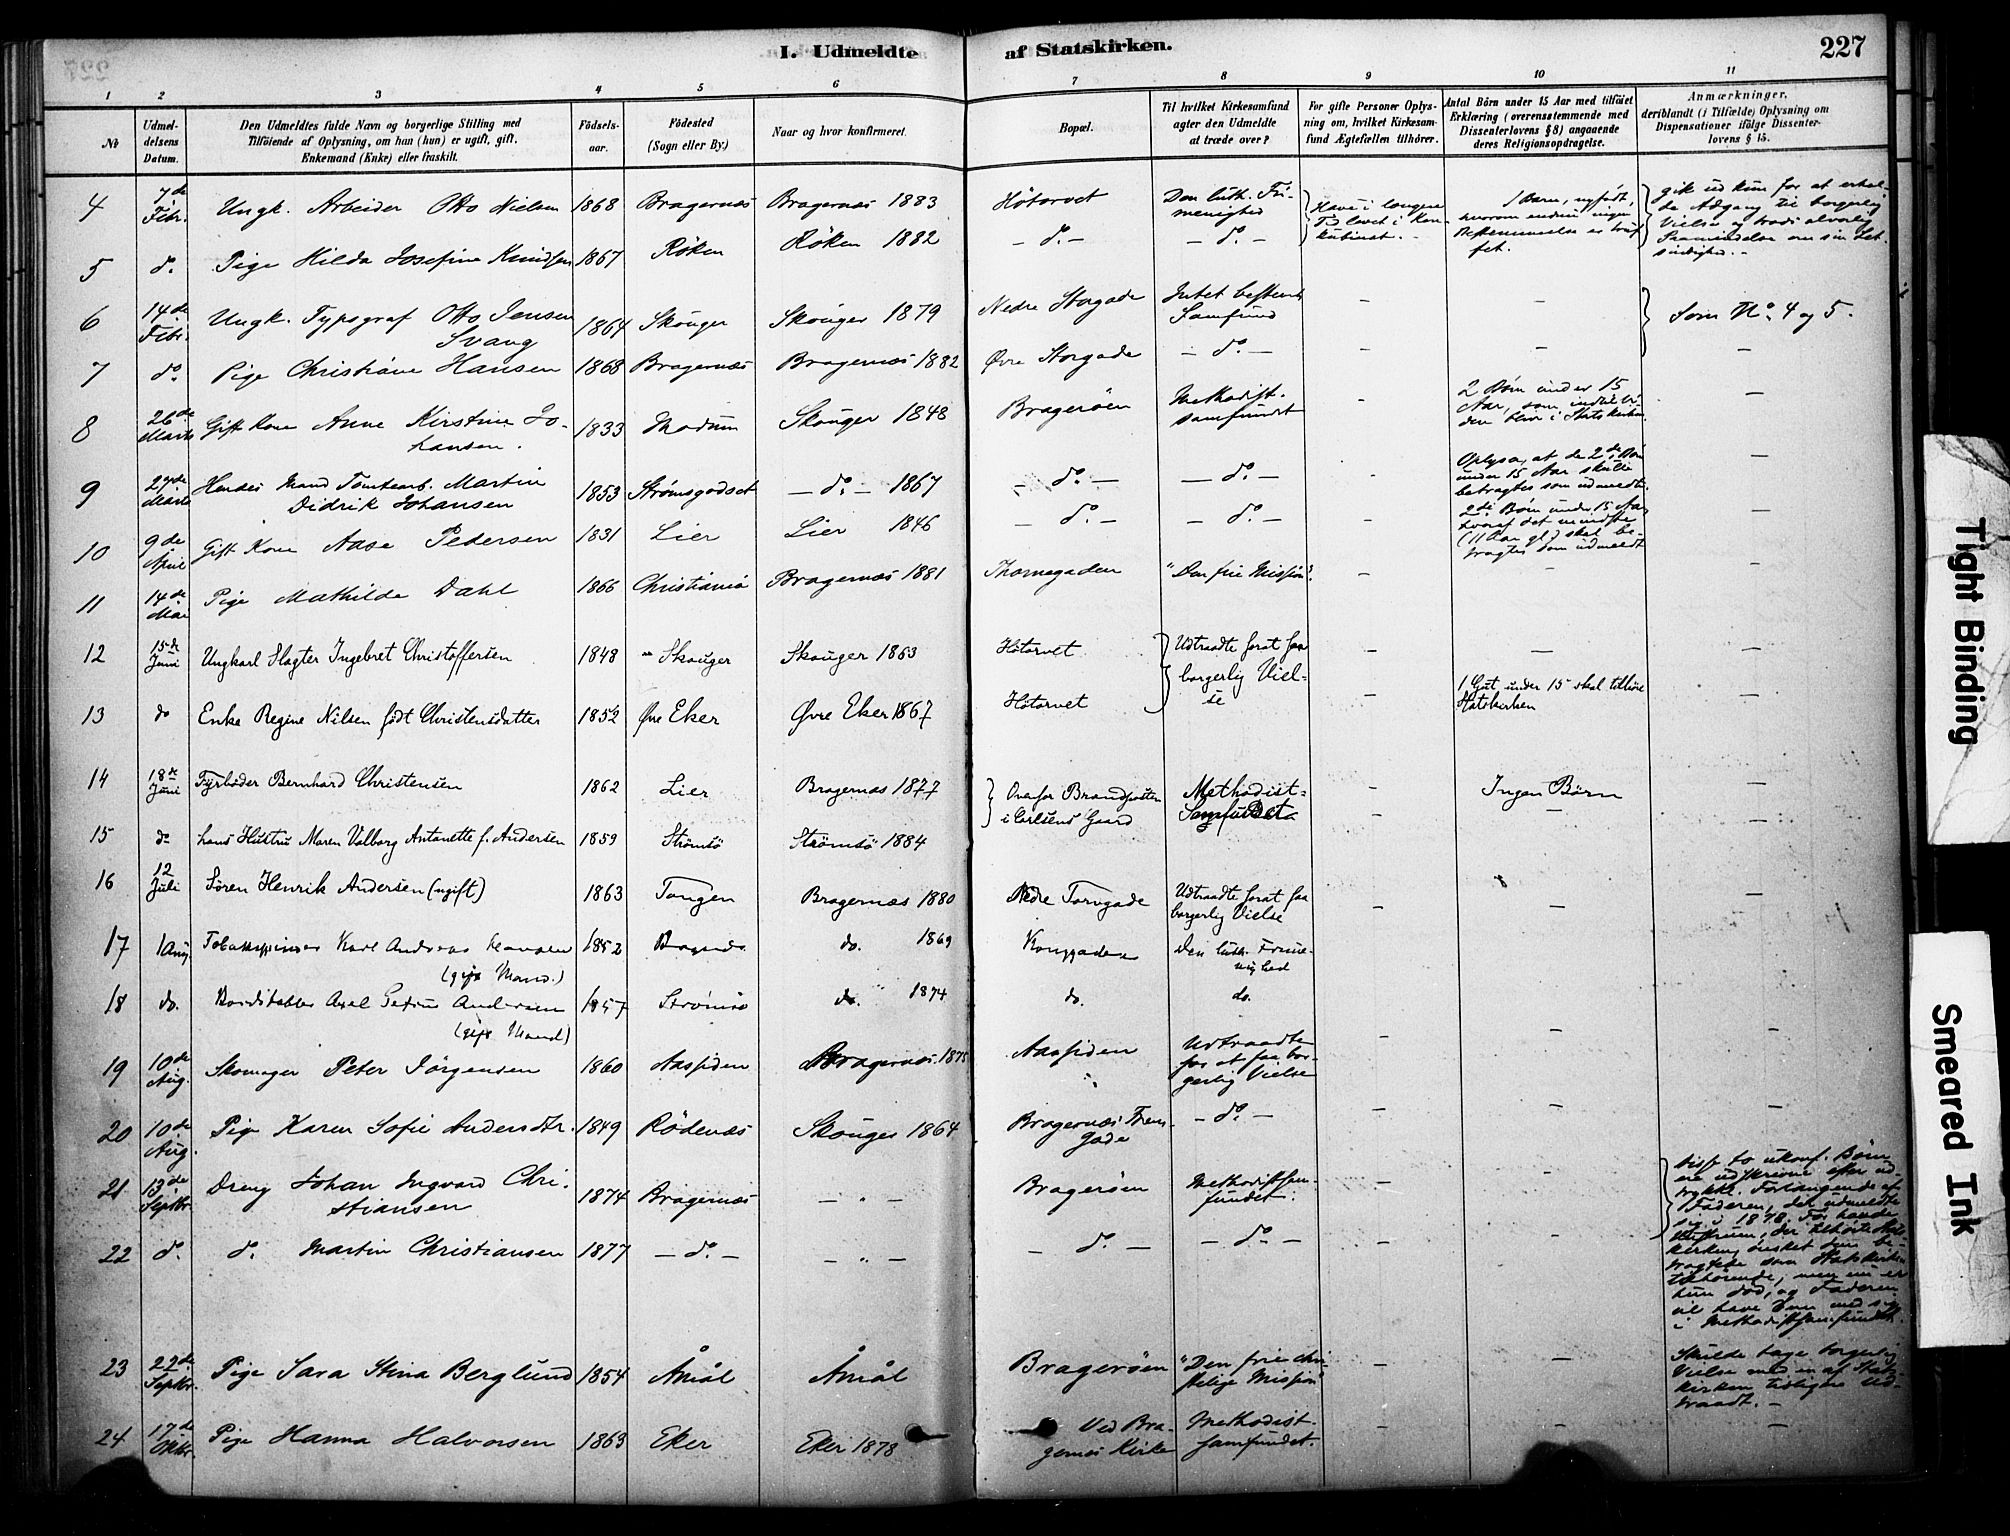 I. Udmeldte af Statskirken.
227
1 2 3 4 5 6 7 8 9 10 11
No
Udmeldelsens Datum.
Den Udmeldtes fulde Navn og borgerlige Stilling med
Tilföiende af Oplysning, om han (hun) er ugift, gift,
Enkemand (Enke) eller fraskilt.
Födselsaar.
Födested
(Sogn eller By)
Naar og hvor konfirmeret.
Bopæl.
Til hvilket Kirkesamfund
agter den Udmeldte
at træde over?
For gifte Personer Oplysning om, hvilket Kirkesamfund Ægtefællen tilhörer.
Antal Börn under 15 Aar med tilföiet
Erklæring (overensstemmende med
Dissenterlovens § 8) angaaende
deres Religionsopdragelse.
Anmærkninger,
deriblandt (i Tilfælde) Oplysning om
Dispensationer ifölge Dissenterlovens § 15.
4 7de Febr. Ungk. Arbeider Otto Nielsen 1868 Bragernæs Bragernæs 1883 Hötorvet Den luth. Frimenighed Have i længere Tid levet i Konkubinat. 1 Barn, nyfödt, hvorom endnu ingen Bestemmelse er truffet. gik ud kun for at erholde Adgang til borgerlig Vielse
5 do. Pige Hilda Josefine Knudsen 1867 Röken Röken 1882 - do. - - do. -
6 14de Febr. Ungk. Typograf Otto Jensen Svang 1864 Skouger Skouger 1879 Nedre Storgade Intet bestemt Samfund - - Som No. 4 og 5.
7 do. Pige Christiane Hansen 1868 Bragernæs Bragernæs 1882 Øvre Storgade - do. - - - -
8 26de Marts Gift Kone Anne Kirstine Johansen. 1833 Modum Skouger 1848 Bragerøen Methodistsamfundet - 2 Børn under 15 Aar, som indtil videre bliver i Statskirken -
9 27de Marts Hendes Mand Tomtearb. Martin Didrik Johansen 1853 Strømsgodset - do. - 1867 - do. - - do. - - Oplyses, at de 2de Børn under 15 Aar skulle betragtes som udmeldte. -
10 9de April Gift Kone Aase Pedersen 1831 Lier Lier 1846 - do. - - do. - 2de Børn under 15 Aar, hvoraf det mindste (11 Aar gl.) skal betragtes som udmeldt -
11 14de Mai Pige Mathilde Dahl 1866 Christiania Bragernæs 1881 Thornegaden "Den frie Mission". - - -
12 15de Juni Ungkarl Slagter Ingebret Christoffersen 1848 Skouger Skouger 1863 Hötorvet Udtraadte forat faa borgerlig Vielse - - -
13 do Enke Regine Nilsen født Christensdatter 1852 Øvre Eker Øvre Eker 1867 Hötorvet - 1 Gut under 15 skal tilhöre Statskirken -
14 18de Juni Fyrbøder Bernhard Christensen 1862 Lier Bragernæs 1877 Ovenfor Brandposten i Carlsens Gaard Methodist-Samfundet - Ingen Børn -
15 do hans Hustru Maren Valborg Antonette f. Andersen 1859 Strömsö Strömsö 1884 - - -
16 12 Juli Sören Henrik Andersen (ugift) 1863 Tangen Bragernæs 1880 Nedre Torvgade Udtraadte forat faa borgerlig Vielse - - -
17 1 Aug. Tobakspinder Karl Andreas Hansen (gift Mand.) 1852 Bragernæs do. 1869 Konggaden Den luth. Frimenighed
18 do. Axel Petrus Andersen (gift Mand) 1857 Strömsö do. 1874 do. do. - - -
19 10de Aug. Skomager Peter Jörgensen 1860 Aassiden Bragernæs 1875 Aassiden Udtraadte for at faa borgerlig Vielse - - -
20 10de Aug. Pige Karen Sofie Andersdtr. 1849 Rödenæs Skouger 1864 Bragernæs Gade - do. - - - -
21 13de Septbr. Dreng Johan Ingvard Christiansen 1874 Bragernæs - " - Bragerøen Methodistsamfundet. - - Disse to ukonf. Børn ere udskrevne efter udtrykkl. Forlangende af Faderen, der udmeldte sig i 1878.
22 do. do. Martin Christiansen 1877 - do. - - " - - do. - - do. - - - men nu er hun død, og Faderen vil have dem med sig i Methodistsamfundet.
23 22de Septbr. Pige Sara Stina Berglund 1854 Åmål Åmål Bragerøen "Den frie christelige Mission" - - Skulde tage borgerlig Vielse med en af Statskirken tidligere Udtraadt. -
24 17de Oktbr. Pige Hanna Halvorsen 1863 Eker Eker 1878 Ved Bragernæs Kirke Methodistsamfundet. - - -
Tight Binding
Smeared Ink